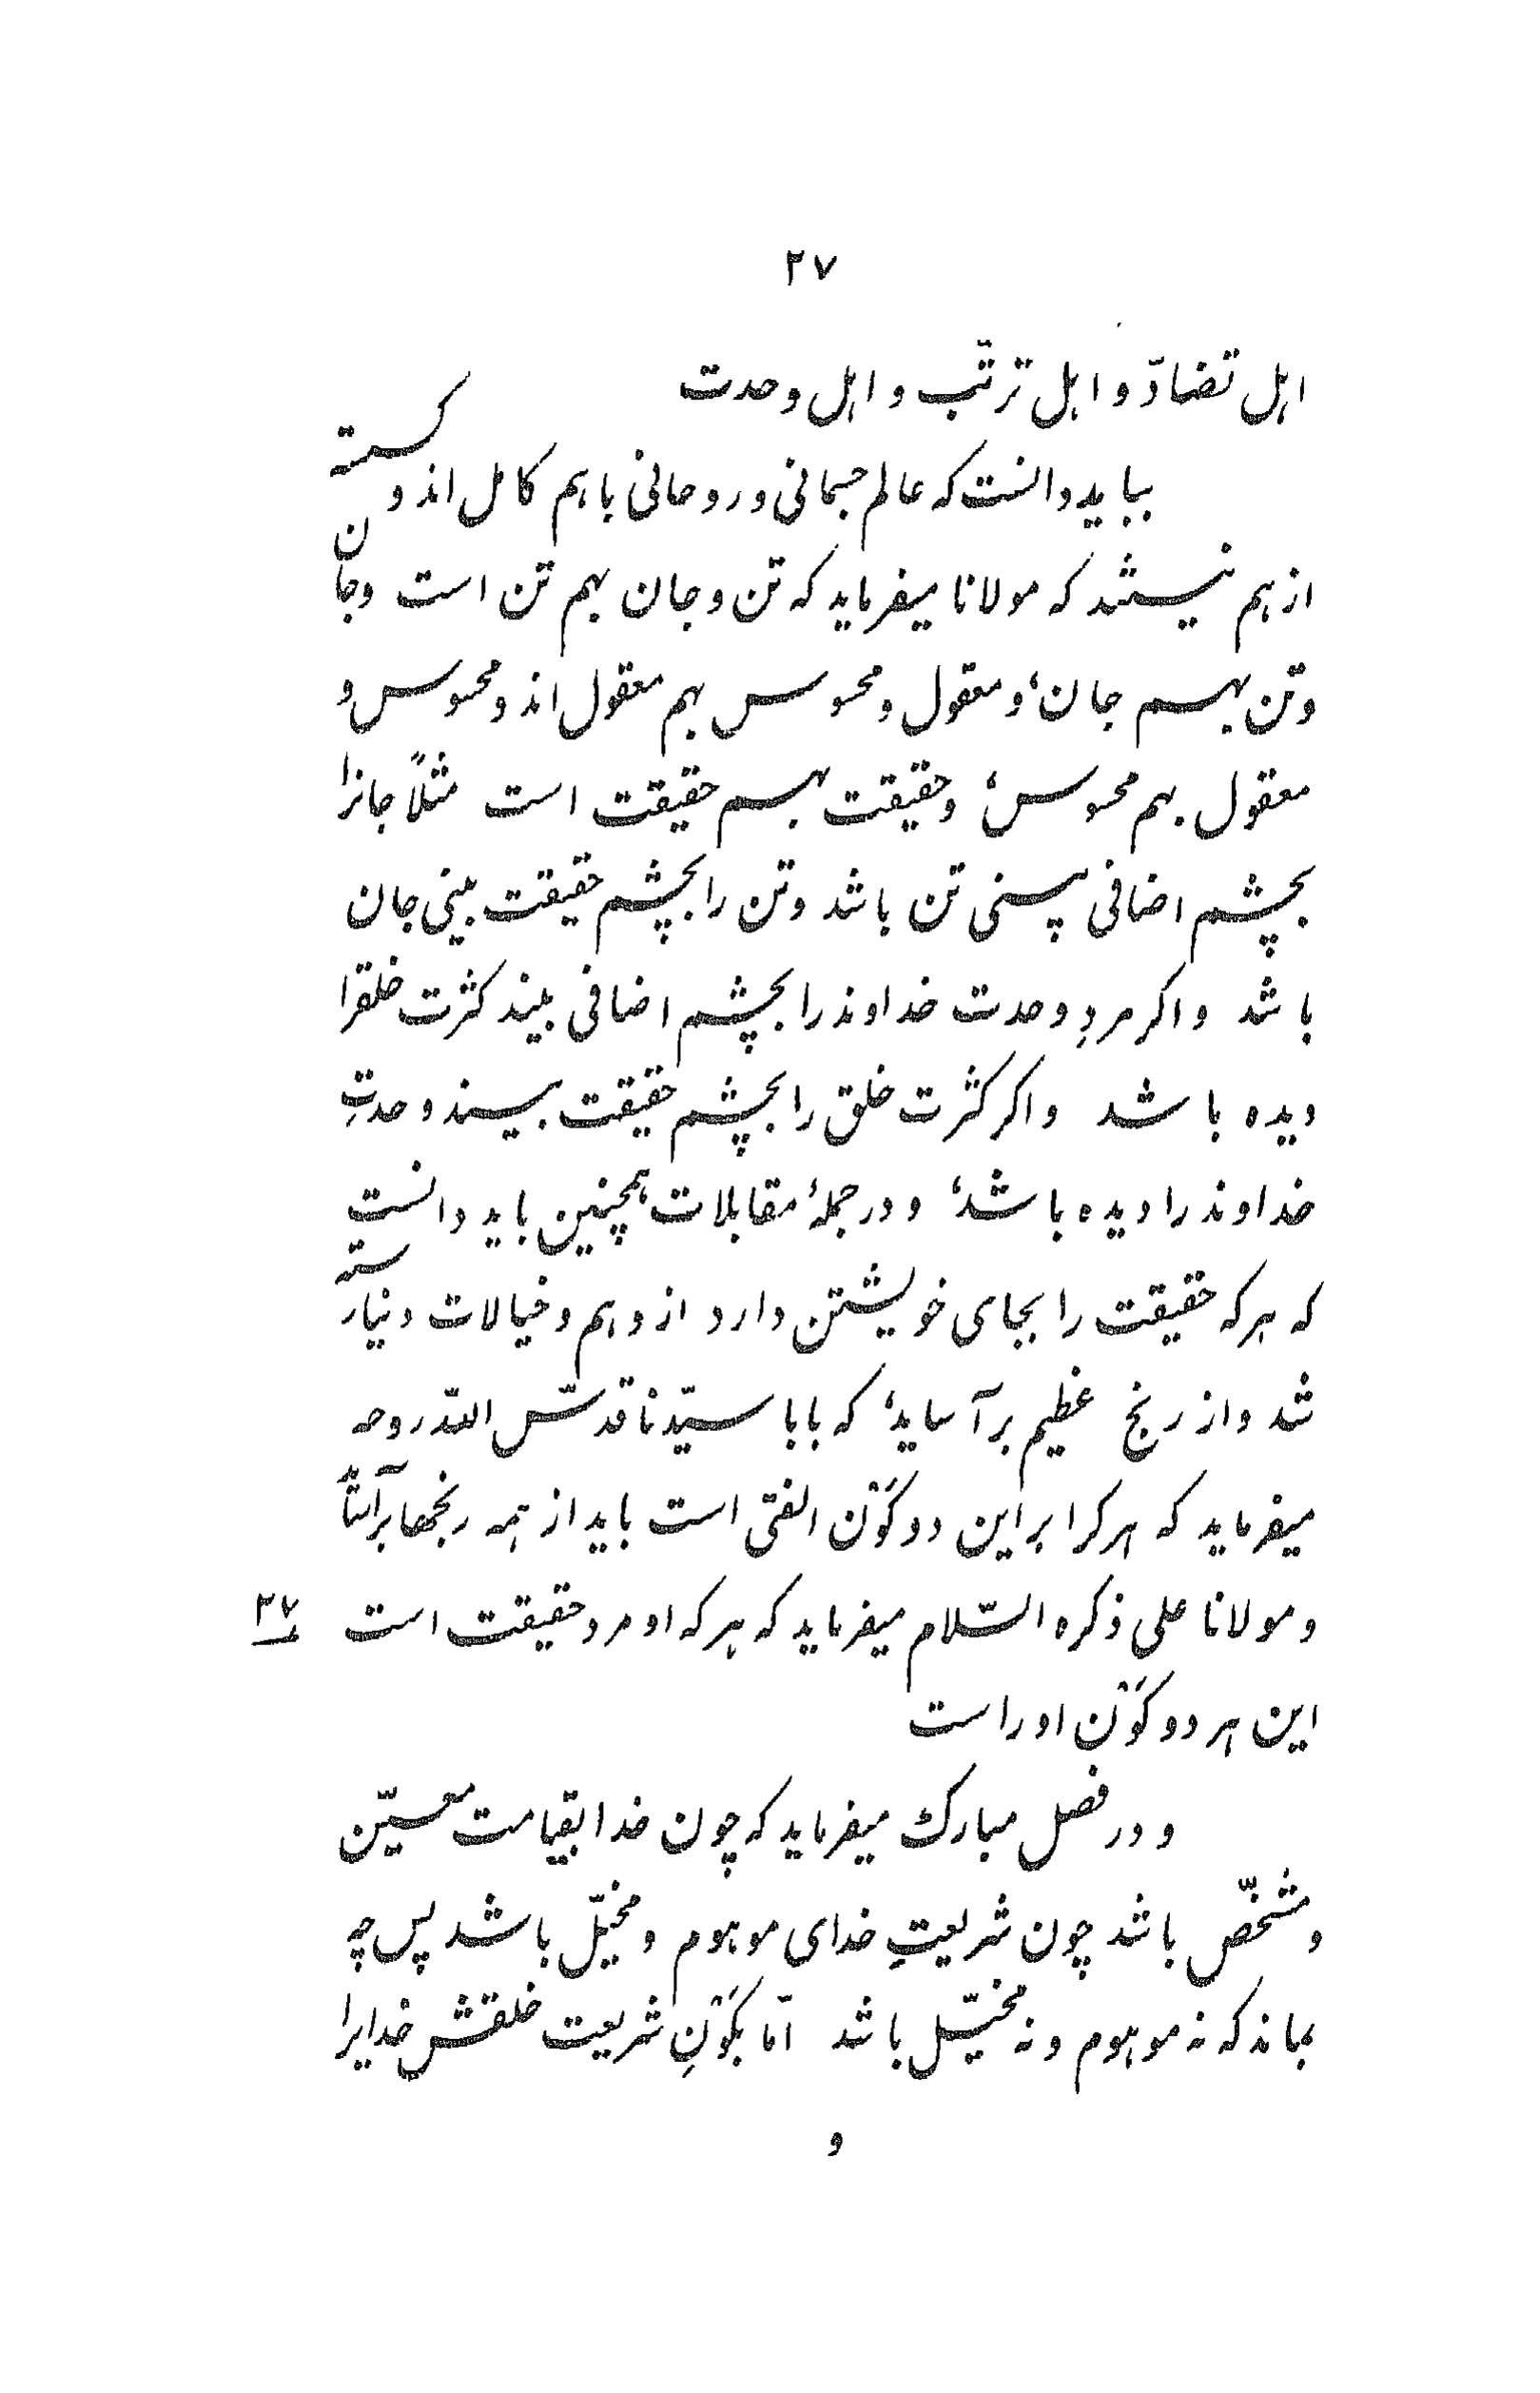 ۲۷
اهل تضادّ و اهل ترتّب و اهل وحدت
بباید دانست که عالم جسمانی و روحانی باهم کامل اند و کسسته
از هم نیستند که مولانا میفرماید که تن و جان بهم تن است و جان
و تن بهم جان، و معقول و محسوس بهم معقول اند و محسوس و
معقول بهم محسوس، و حقیقت بهم حقیقت است مثلاً جانرا
بچشم اضافی بینی تن باشد و تن را بچشم حقیقت بینی جان
باشد و اکر مردِ وحدت خداوند را بچشم اضافی بیند کثرت خلقرا
دیده باشد و اکر کثرت خلق را بچشم حقیقت بیند وحدتِ
خداوند را دیده باشد، و در جملهٔ مقابلات همچنین باید دانست
که هر که حقیقت را بجای خویشتن دارد از وهم و خیالات دنیا رسته
شد و از رنج عظیم برآساید، که بابا سیّدنا قدّس اللّه روحه
میفرماید که هر کرا براین دو کَوْن الفتی است باید از همه رنجها برآساید
و مولانا علی ذکره السّلام میفرماید که هر که او مرد حقیقت است
۲۷
این هر دو کَوْن او راست
و در فصل مبارک میفرماید که چون خدا بقیامت معیّن
و مشخّص باشد چون شریعتِ خدای موهوم و مخیّل باشد پس چه
بماند که نه موهوم و نه مخیّل باشد امّا بکَوْنِ شریعت خلقش خدایرا
و